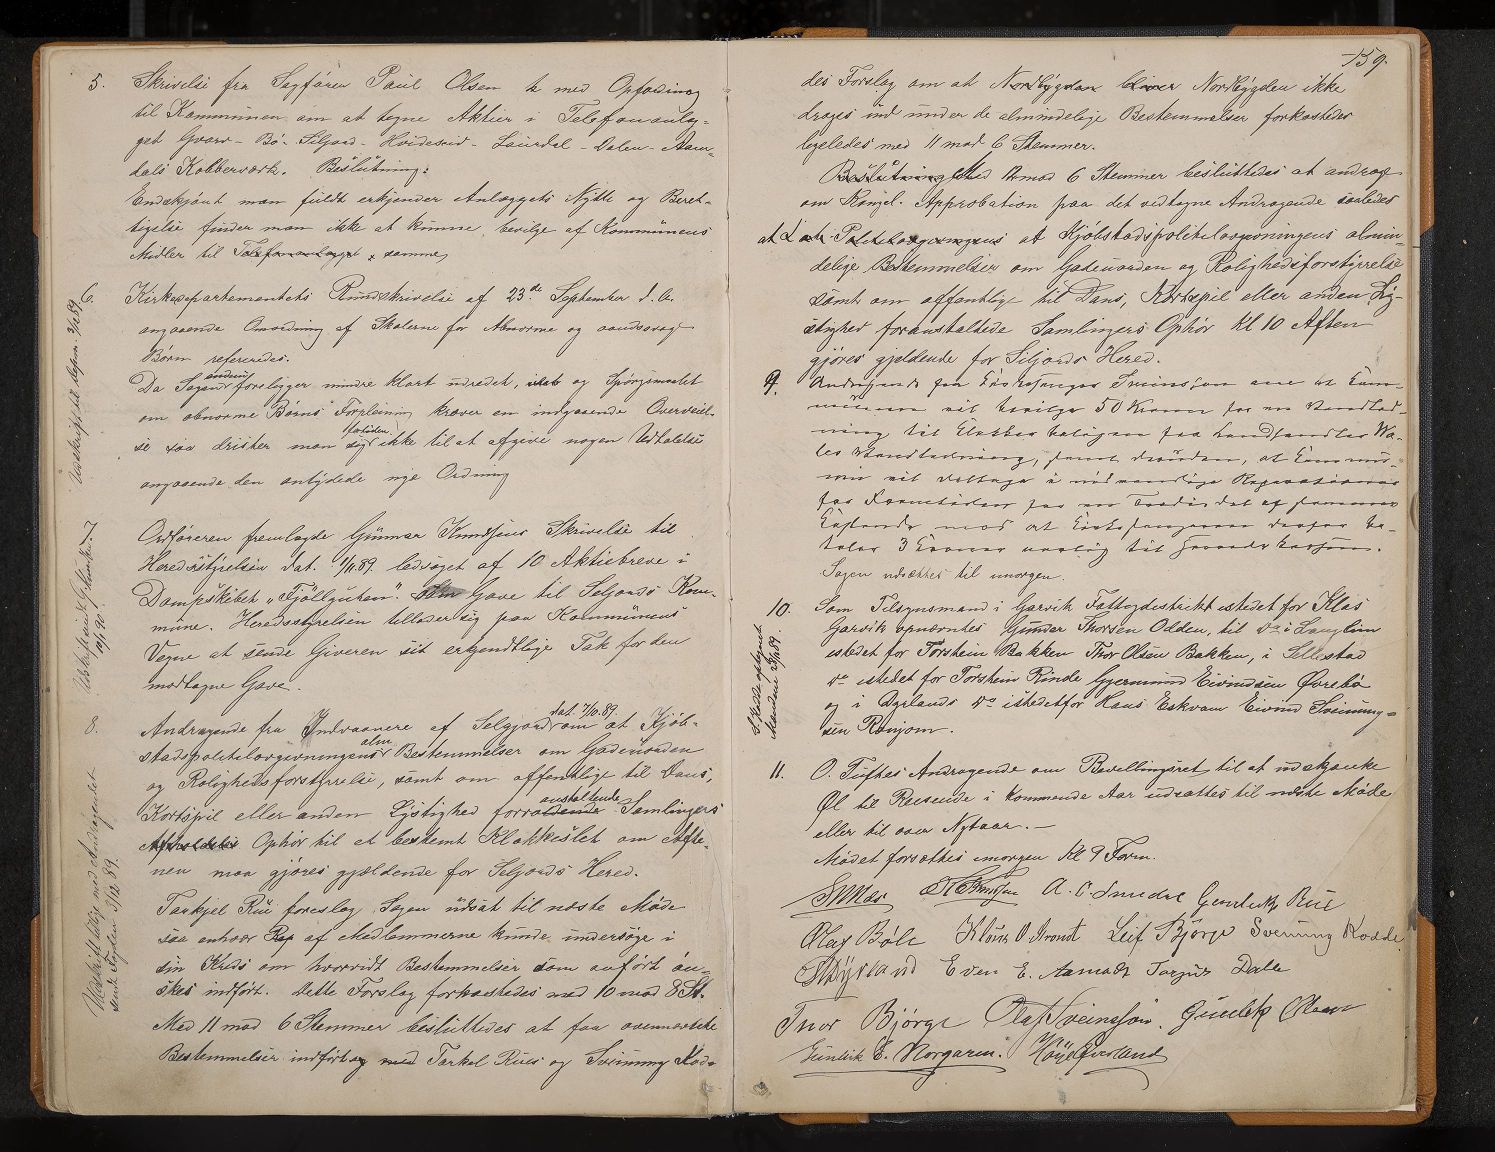 5. Skrivelse fra Sagfører Paul Olsen med Opfordring
til Kommunen om at tegne Aktier i Telefonanlæ-
get Gvarv - Bø - Siljord - Hvideseid - Laurdal - Dalen - Aam-
dals Kobberværk. Beslutning:
Endskjønt man fuldt erkjender Anlæggets Nytte og Beret-
tigelse finder man ikke at kunne bevilge af Kommunens
Midler til Telefonanlægget samme
6. Kirkedepartementets Rundskrivelse af 23de September d. A.
angaaende Omordning af Skolerne for Abnorme og aandssvage
Børn refereredes.
Da Sagen endnu forligger mindre klart udredet, og Spørgsmaalet
om abnorme Børns Forpleining kræver en indgaaende Overveiel-
se saa drister man sig forløben ikke til at afgive nogen Udtalelse
angaaende den antydede nye Ordning
Udskrift til Lepm. 3/12 89.
7 Ordføreren fremlagde Gunnar Knudsens Skrivelse til
Heredsstyrelsen dat. 1/11.89. ledsaget af 10 Aktiebreve i
Dampskibet „Fjöllguten". Som Gave til Seljords Kom-
mune. Heredsstyrelsen tillader sig paa Kommunens
Vegne at sende Giveren sit erkjendtlige Tak for den
modtagne Gave.
8. Andragende fra Indvaanere af Seljord dat. 7/10.89. om at Kjøb-
stadspolitilovgivningens alm Bestemmelser om Gadeuorden
og Rolighedsforstyrrelse, samt om offentlige til Dans,
Kortspil eller anden Lystighed forraanstaltende Samlingers
Afholdelse Ophør til et bestemt Klokkeslet om Afte-
nen maa gjøres gjældende for Seljords Hered.
Tarkjel Rue foreslog Sagen udsat til næste Møde
saa enhver Rep af Medlemmerne kunde undersøge i
sin Kreds om hvorvidt Bestemmelser som anført øn-
skes indført. Dette Forslag forkastedes med 10 mod 8 St.
Med 11 mod 6 Stemmer besluttedes at faa ovennævnte
Bestemmelser indført og med Tarkel Rues og Svinung Kod-
Udskrift tillig med Andragendet
sendt Fogden 3/12 89.
159.
des Forslag om at Nordbygden bliver Nordbygden ikke
drages ind under de almindelige Bestemmelser forkastedes
ligeledes med 11 mod 6 Stemmer.
Beslutning Med 11 mod 6 Stemmer besluttedes at andrage
om Kongel. Approbation paa det vedtagne Andragende saaledes
at Politilovgivningens at Kjøbstadspolitilovgivningens almin-
delige Bestemmelser om Gadeuorden og Rolighedsforstyrrelse
samt om offentlige til Dans, Kortspil eller anden Ly-
stighed foranstaltede Samlingers Ophør Kl 10 Aften
gjøres gjeldende for Seljords Hered.
9. Andragende fra Sveinsson om at Kom-
munen vil bevilge 50 Kroner for en Vandled-
ning til Klokkerboligen fra Landhandler Wa-
les Vandledning, samt desuden, at Kommu-
nen vil deltage i nødvendige Reparationer
for Fremtiden for en Tredie del af samme
mod at Kirkesangeren derfor be-
taler 3 Kroner aarlig til Heredskassen.
Sagen udsættes til imorgen.
10. Som Tilsynsmand i Garvik Fattigdistrikt istedet for Klas
Garvik opnævntes Gunder Thorsen Odden, til do i Langlim
istedet for Torstein Bakken Thor Olsen Bakken, i Sellestad
do istedet for Torstein Rinde Gjermund Eivindsen Øvrebø
og i Dyrlands do istedetfor Hans Eskvam Eivind Svinung-
sen Rønjom.
11. O. Tuftes Andragende om Bevillingsret til at udskjænke
Øl til Reisende i kommende Aar udsattes til næste Møde
eller til over Nytaar.—
Mødet forsættes imorgen Kl 9 Form.
A. C. Smedal Gunleik Rue
Olav Bøle Leif Bjørge Svenung Kodde
Dyrland Even E. Aamodt Torjus Dale
Thor Bjørge Olaf Sveinsson. Gunleik
Gunleik E. Norgaren.